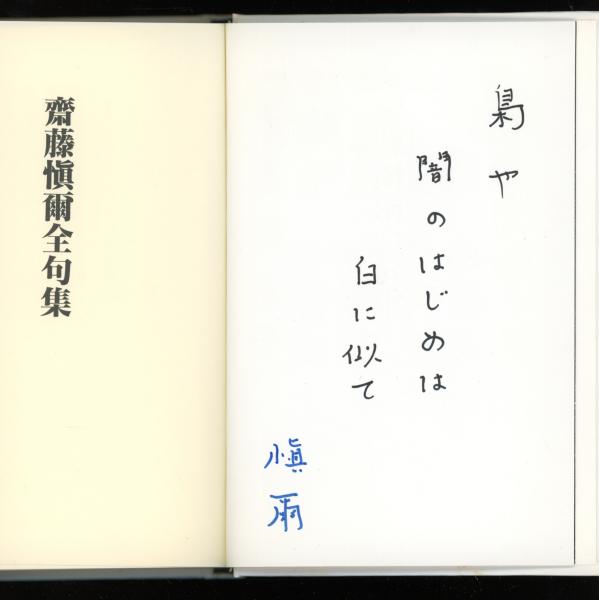 梟や
闇のはじめは
臼に似て
愼爾
齋藤愼爾全句集